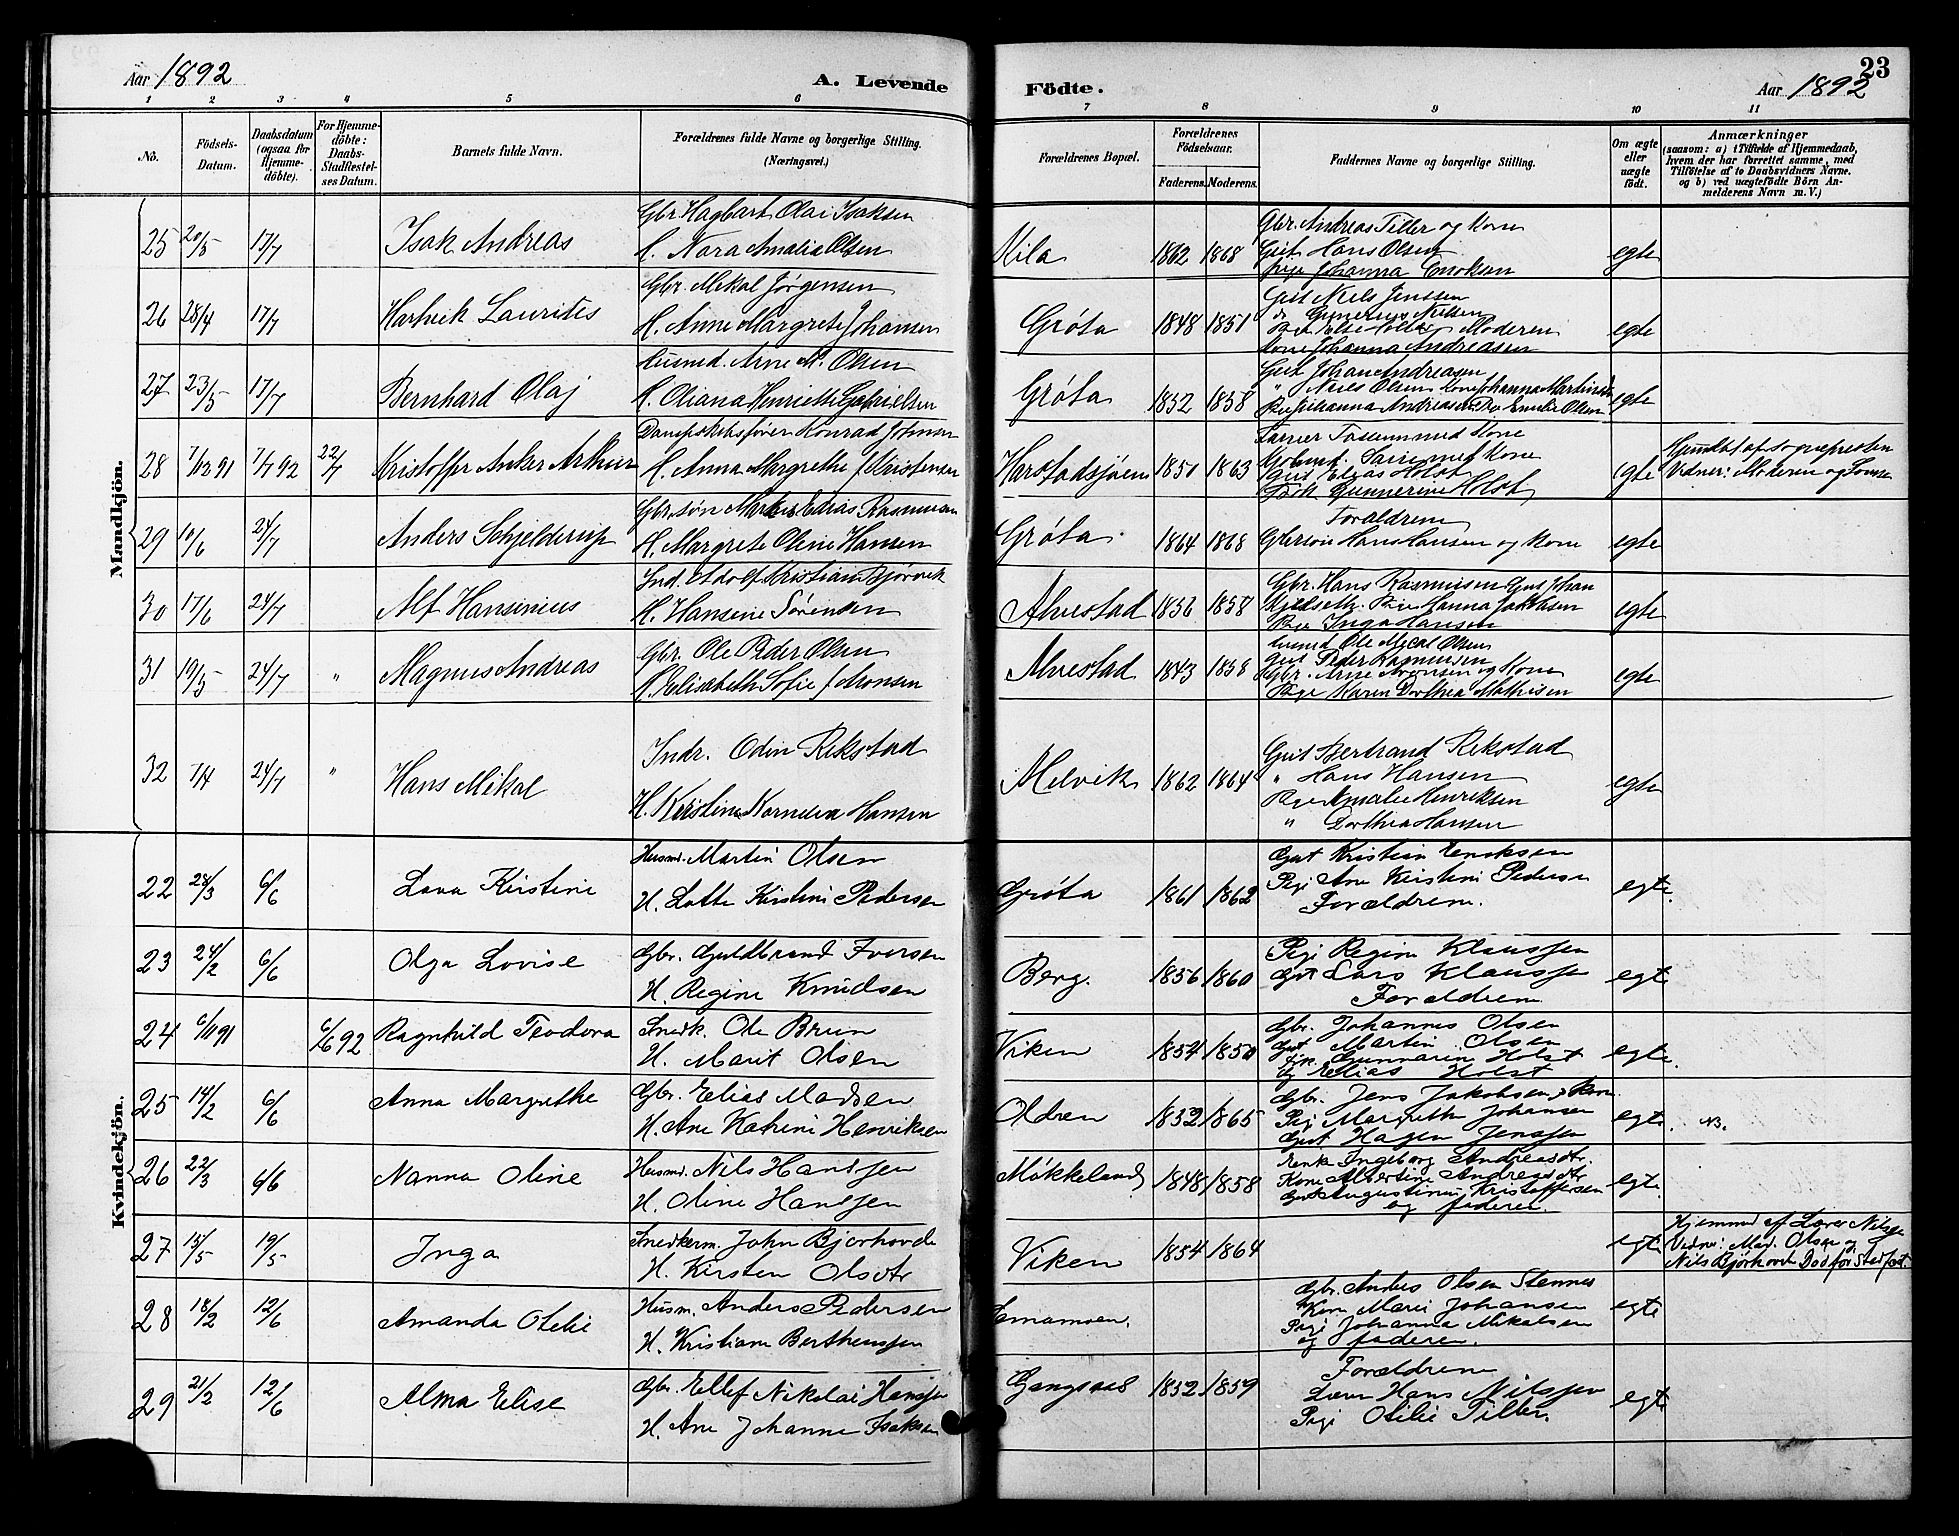 23
Aar 1892
A. Levende
Födte.
Aar 1892
1 2 3 4 5 6 7 8 9 10 11
No.
Födsels-Datum.
Daabsdatum (ogsaa for Hjemme-döbte).
For Hjemme-döbte: Daabs-Stadfæstel-ses Datum.
Barnets fulde Navn.
Forældrenes fulde Navne og borgerlige Stilling. (Næringsvei.)
Forældrenes Bopæl.
Forældrenes Födselsaar.
Faderens. Moderens.
Faddernes Navne og borgerlige Stilling.
Om ægte eller uægte födt.
Anmærkninger
(saasom: a) i Tilfælde af Hjemmedaab,
hvem der har forrettet samme, med
Tilföielse af to Daabsvidners Navne.
og b) ved uægtefödte Börn An-
melderens Navn m. V.)
Mandkjön.
25 20/5 17/7 Isak Andreas
Gbr. Hagbart Olai Isaksen
H. Nora Amalia Olsen
Kila 1862 1868
Gbr. Andreas Tiller og Kone
Gut Hans Olsen
Pige Johanna
egte
26 28/4 17/7 Hartvik Laurits
Gbr. Mekal Jørgensen
H. Anne Margrete Johansen
Grøta 1848 1851
Gut Niels Jenssen
Moderen
Kone Johanna Andreasen
egte
27 23/5 17/7 Bernhard Olaj
Husmd. Arne M. Olsen
H. Oliana Henriette Gabrielsen
Grøta 1852 1858
Gut Johan Andreasen
" Niels Olsen Kone Johanna
Pige Johanna Andreasen Pige Emelie Olsen
egte
28 7/12 91 7/7 92 22/7 Kristoffer Anker Arthur
Dampskibsfører Konrad Johnsen
H. Anna Margrethe Kristensen
Harstadsjøen 1851 1863
med Kone
med Kone
Gut Elias Holst
Frøk Gunnerine Holst
egte
af sognepresten
Vidner: Moderen og
29 10/6 24/7 Anders Schjelderup
Gbr.søn Markus Edias Rasmussen
H. Margrete Oline Hansen
Grøta 1864 1868
Forældrene
Gbrsøn Hans Hansen og Kone
egte
30 17/6 24/7 Alf Hansinius
Ind. Adolf Kristian Bjørnvik
H. Hansine Sørensen
Alvestad 1856 1858
Gbr. Hans Rasmussen Gut Johan
Kjilseth. Pige Hanna Jakobsen
Pige Inga Hansen
egte
31 19/5 24/7 " Magnus Andreas
Gbr. Ole Peder Olsen
H. Elisabeth Sofie Aronsen
Alvestad 1843 1858
Husmd Ole Mical Olsen
Gut Peder Rasmussen
Gbr. Arne Aronsen og Kone
Pige Karen Dorthea Mathisen
egte
32 7/4 24/7 " Hans Mikal
Indr. Odin Rekstad
H. Kristine Kornelia Hansen
Melvik 1862 1864
Gut Bertrand Rekstad
" Hans Hansen
Pige Amalie Henriksen
" Dorthea Hansen
egte
Kvindekjön.
22 28/3 6/6 Lava Kirstine
Husmd. Martin Olsen
H. Lotte Kirstine Pedersen
Grøta 1861 1862
Gut Kristian Enoksen
Pige Ane Kirstine Pedersen
Forældrene.
egte.
23 24/2 6/6 Olga Lovise
Gbr. Guldbrand Iversen
H. Regine Knudsen
Berg. 1856 1860
Pige Regine Klaussen
Gut Lars Klaussen
Forældrene
egte
24 6/11 91 6/6 92 Ragnhild Teodora
Snedk. Ole Bruun
H. Marit Olsen
Viken 1854 1850
Gbr. Johannes Olsen
Gut Martin Olsen
Frk. Gunnarine Holst
og Elias Holst
egte.
25 14/2 6/6 Anna Margrethe
Gbr. Elias Madsen
H. Ane Katrine Henriksen
Oldren 1832 1865
Gbr. Jens Jakobsen, Kone
Pige Margrethe Johansen
Gut Hagen Jenssen
egte. NB.
26 22/3 6/6 Nanna Oline
Husmd. Nils Hanssen
H. Oline Hanssen
Møkkeland 1848 1858
Enke Ingeborg Andreasdtr.
Kone Albertine Andreasdtr
Gut Augustinus Kristoffersen
og faderen.
egte.
27 15/5 19/5 Inga
Snedkerm. John Bjorhovde
H. Kirsten Olsdtr
Viken 1854 1864
egte
Hjemmed. af Lærer Nilsse
Vidne: Mag. Olsen og
Nils Bjørhovde Død før Stadfæst.
28 18/2 12/6 Amanda Otelie
Husm. Anders Pedersen
H. Kristiane Berthenssen
Ernamoen.
Gbr. Anders Olsen Stennes
Kone Marie Johansen
Pige Johanna Mikalsen
og faderen.
egte
29 21/2 12/6 Alma Elise
Gbr. Ellef Nikolai Hanssen
H. Ane Johanne Isaksen
Gangsaas 1852 1859
Forældrene
Lærer Hans Nilssen
Pige Otilie Tiller.
egte